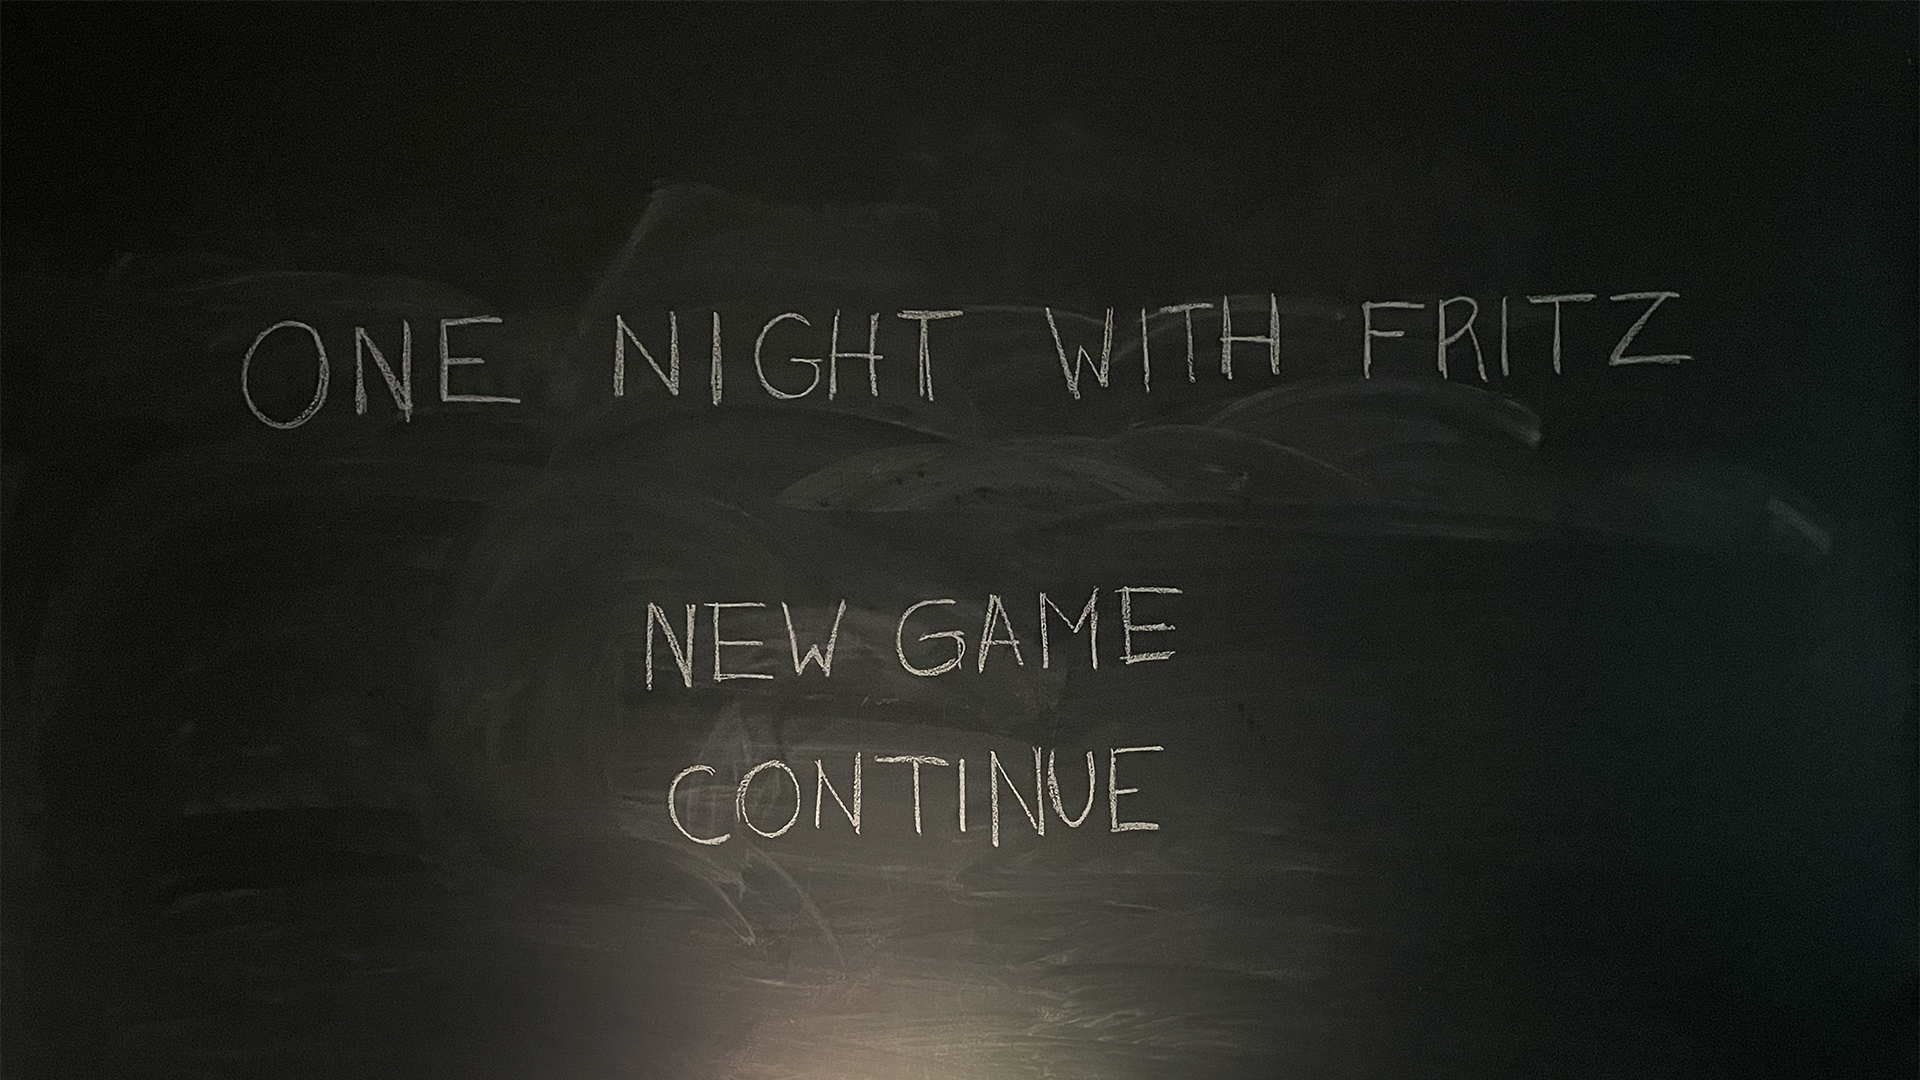 ONE NIGHT WITH FRITZ
NEW GAME
CONTINUE